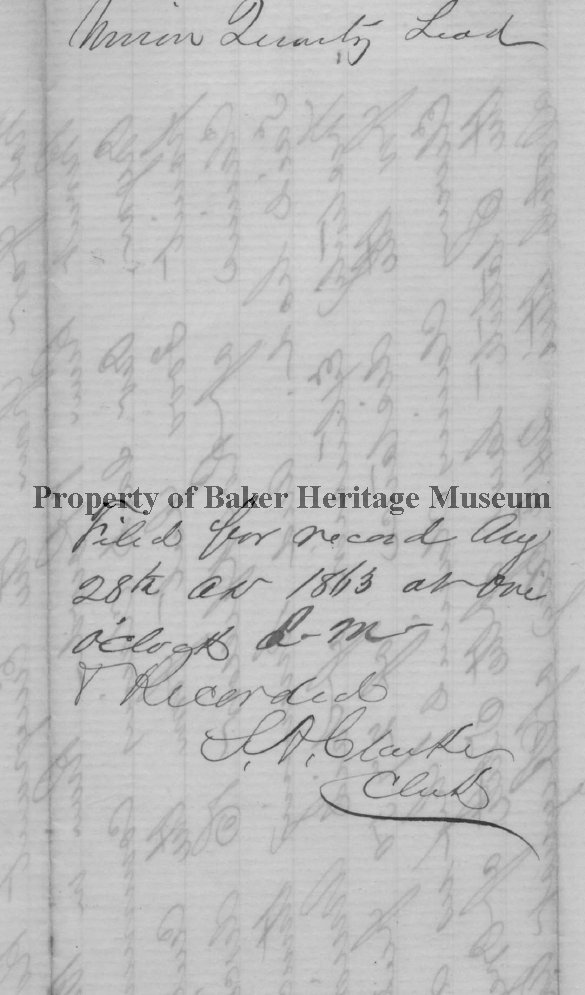 Union Quartz Lead
Property of Baker Heritage Museum
Filed for record Aug
28th AD 1863 at one
o'clock P. M
& Recorded
S. A. Clarke
Clerk